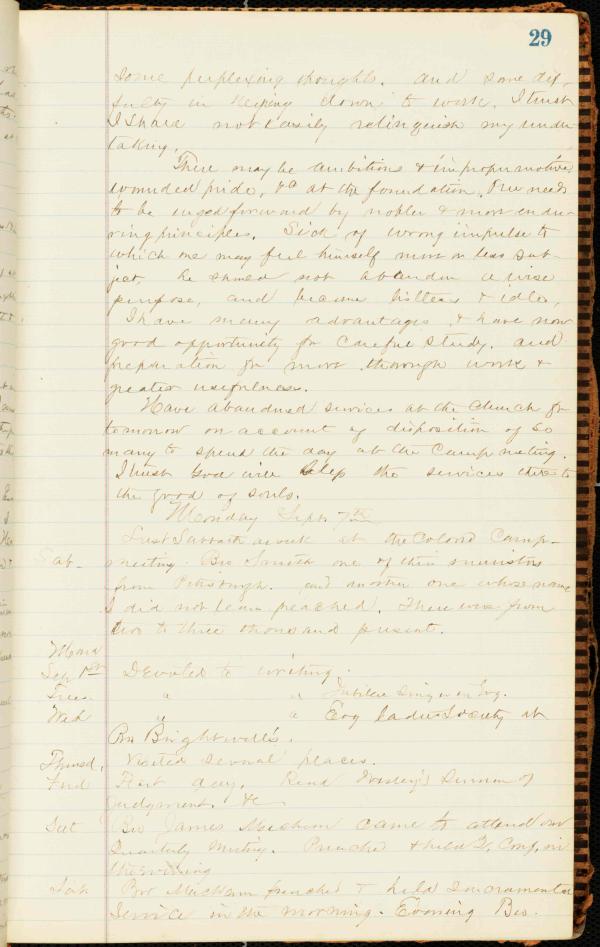 29
some perplexing thoughts. and some dif-
ficulty in keeping down to work. I trust
I shall not easily relinquish my under
taking.
There may be ambitions & improper motives
wounded pride, &c at the foundation. One needs
to be urged forward by nobler & more endu-
ring principles. Sick of wrong impulse to
which one may feel himself more or less sub-
ject, he should not abandon a wise
purpose, and become listless & idle.
I have many advantages & have now
good opportunity for careful study. and
preparation for more thorough work &
greater usefulness.
Have abandoned services at the Church for
tomorrow on account of disposition of so
many to spend the day at the Camp meeting.
I trust God will bless the services there to
the good of souls.
Monday Sept. 7th
Last Sabbath a week at the Colored Camp-
Sab- meeting. Bro Smith one of their ministers
from Pittsburgh. and another one whose name
I did not learn preached. There were from
two to three thousand present.
Mond
Sep 1st Devoted to writing.
Tues. " " Jubilee Singers in Evg.
Wed " " Evg Ladies Society at
Bro Brightwell's.
Thursd. Visited several places.
Frid Fast day. Read Wesley's Sermon of
Judgment. &c
Sat Bro James Mecham came to attend our
Quarterly Meeting. Preached & held Q. Conf. in
the evening
Sab Bro Mecham preached & held Sacramental
Service in the morning. Evening Bro.